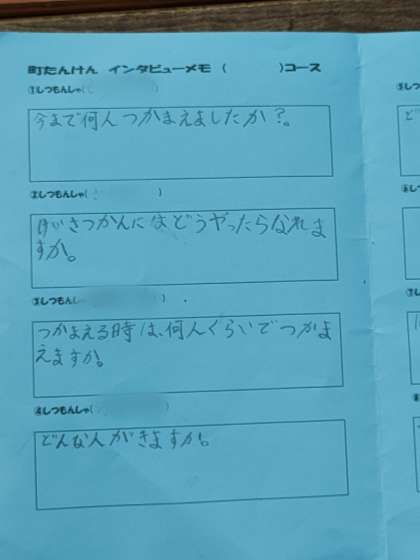 町たんけん インタビューメモ ( )コース
①しつもんしゃ( )
今まで何人つかまえましたか?。
②しつもんしゃ( )
けいさつかんにはどうやったらなれま
すか。
③しつもんし
つかまえる時は、何人ぐらいでつかま
えますか。
④しつもんしゃ( )
どんな人がきますか。
⑤しつ
ど